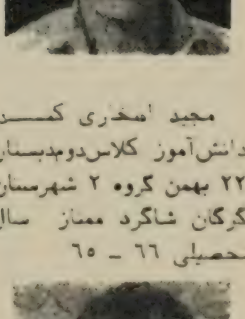 مجید افتخاری کمسـن
دانش‌آموز کلاس‌دوم‌دبستان
۲۲ بهمن گروه ۲ شهرستان
گرگان شاگرد ممتاز سال
تحصیلی ٦٦ ـ ٦٥